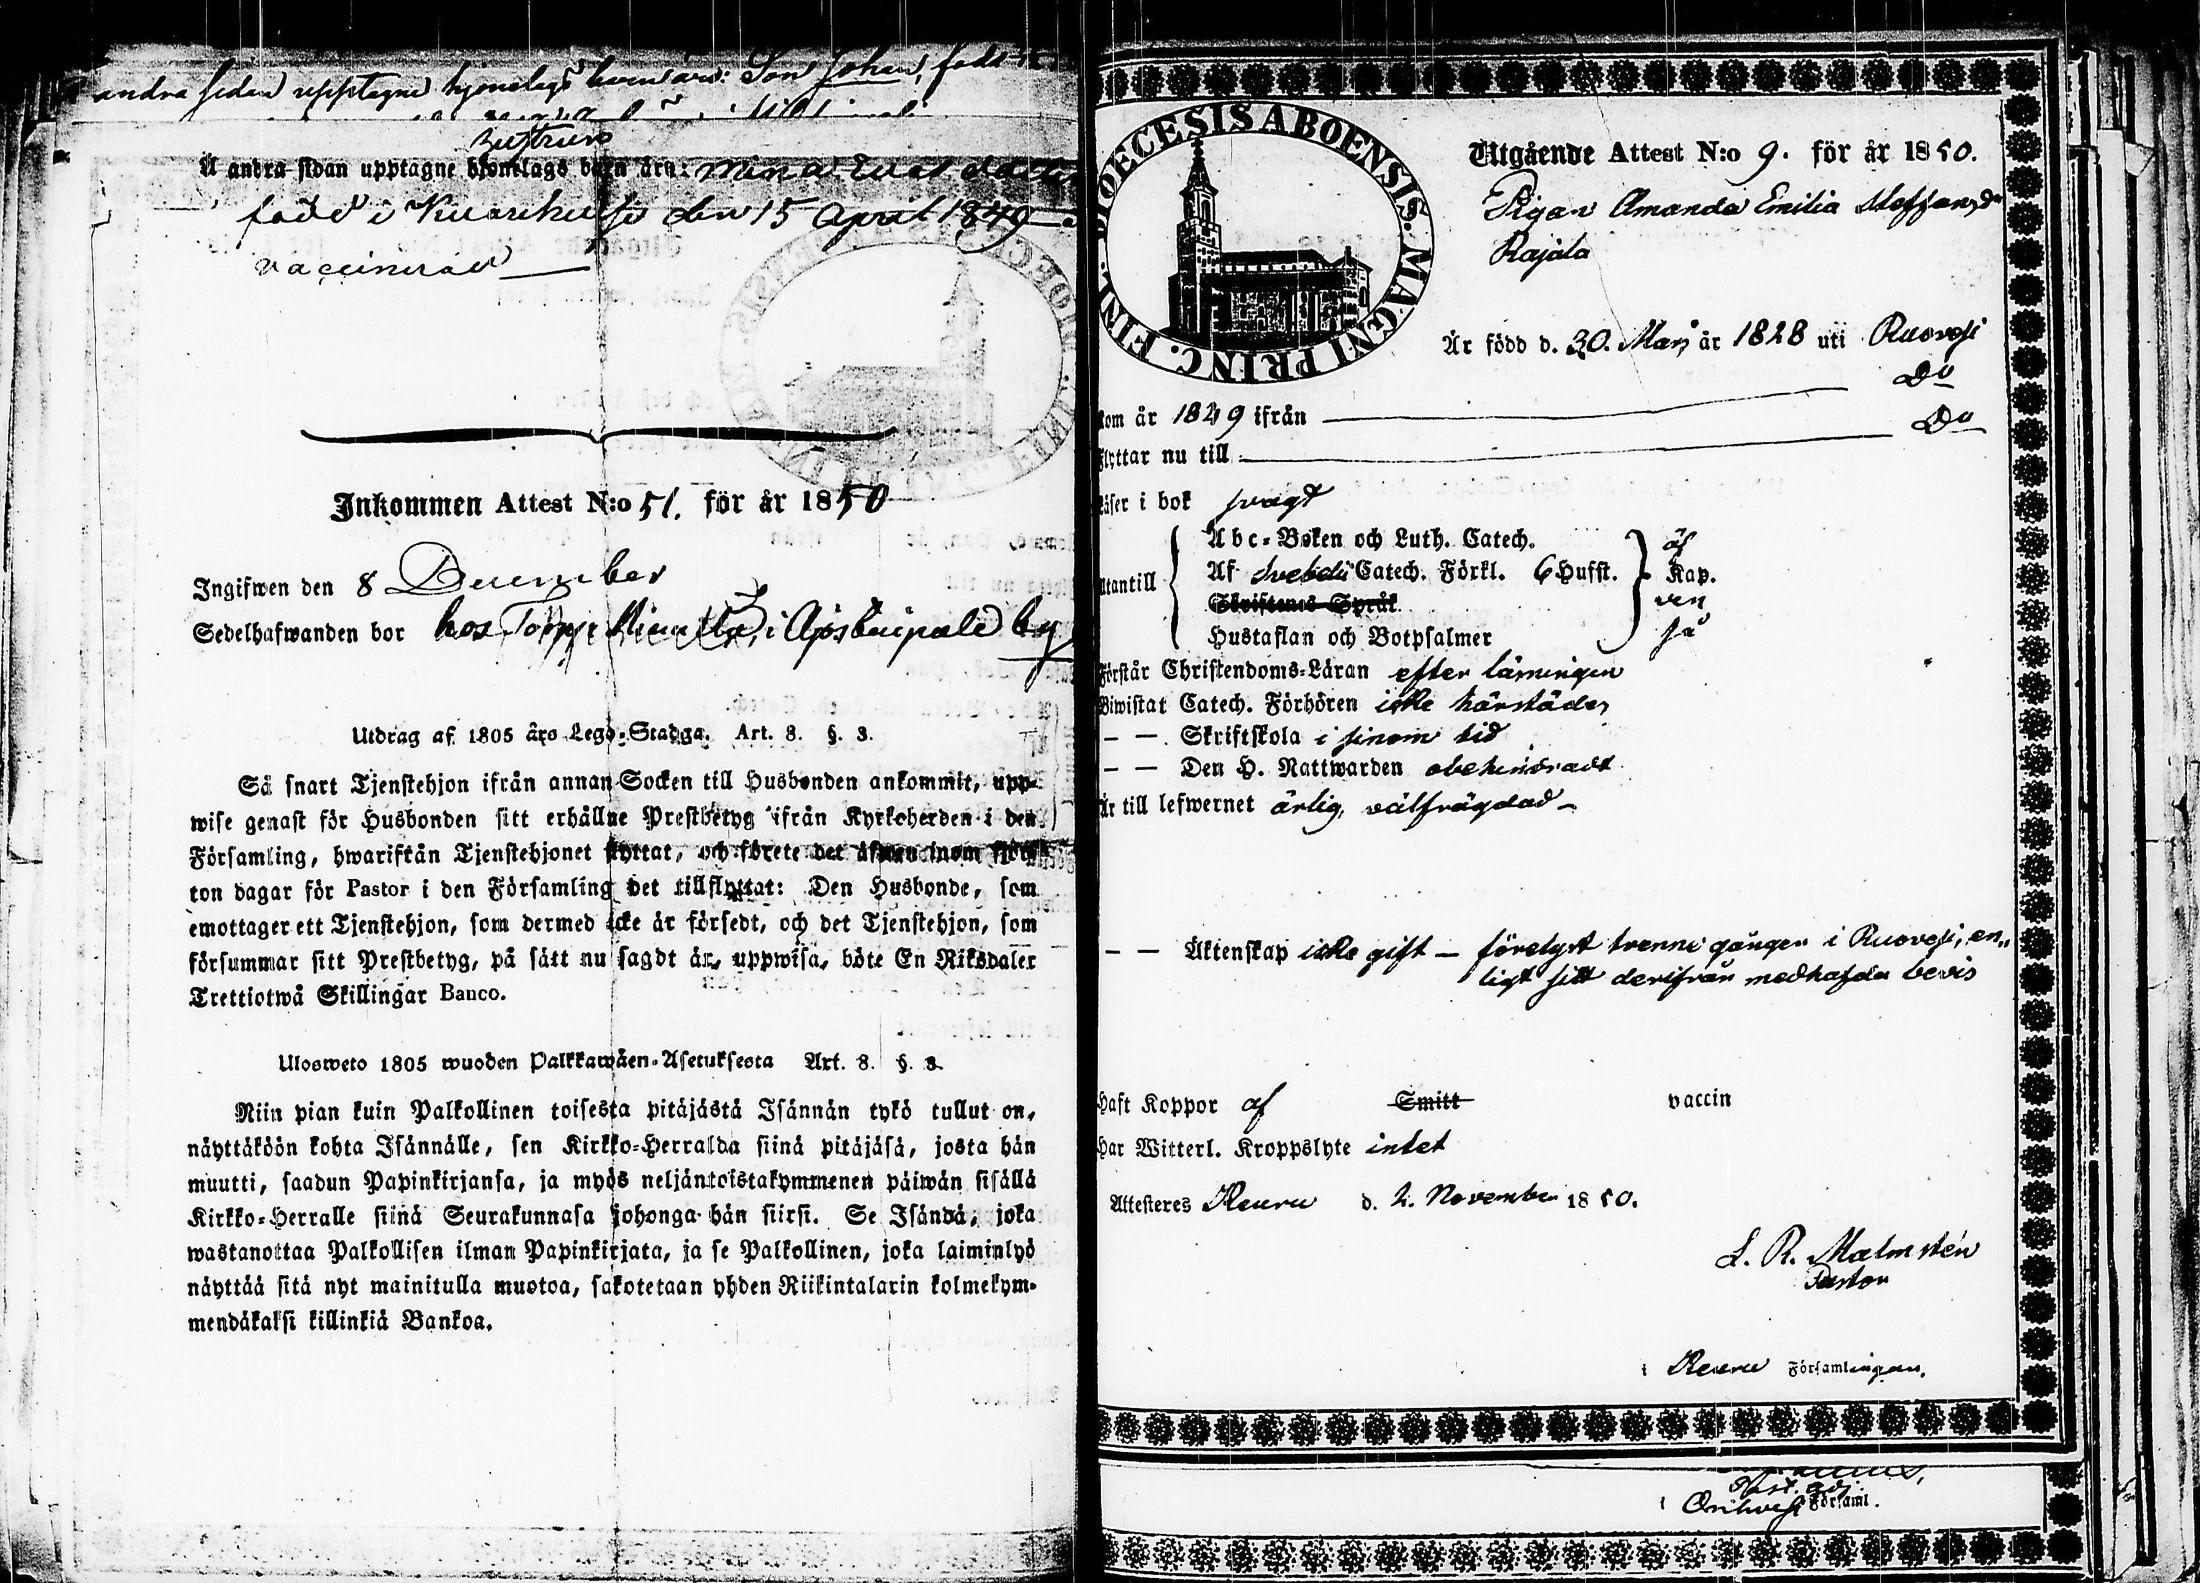 andra sedan upptagne hjonelags barn äro: Son Johan, född
Hustrun
Å andra sidan upptagne hjonelags barn äro: Mina Evas dotter
född i Kuorehvesi den 15 April 1849
vaccinerad
Inkommen Attest N:o 51. för år 1850
Ingifwen den 8 December
Sedelhafwanden bor hos Torpp. i by
Utdrag af 1805 års Lego-Stadga. Art. 8. §. 3.
Så snart Tjenstehjon ifrån annan Socken till Husbonden ankommit, upp-
wise genast för Husbonden sitt erhållne Prestbetyg ifrån Kyrkoherden i den
Församling, hwarifrån Tjenstehjonet flyttat, och förete det äfwen inom fjor-
ton dagar för Pastor i den Församling det tillflyttat: Den Husbonde, som
emottager ett Tjenstehjon, som dermed icke är försedt, och det Tjenstehjon, som
försummar sitt Prestbetyg, på sätt nu sagdt är, uppwisa, böte En Riksdaler
Trettiotwå Skillingar Banco.
Ulosweto 1805 wuoden Palkkawäen-Asetuksesta Art. 8. §. 3.
Niin pian kuin Palkollinen toisesta pitäjästä Isännän tykö tullut on,
näyttäköön kohta Isännälle, sen Kirkko-Herralda siinä pitäjäsä, josta hän
muutti, saadun Papinkirjansa, ja myös neljäntoistakymmenen päiwän sisällä
Kirkko-Herralle siinä Seurakunnasa johonga hän siirsi. Se Isändä, joka
wastanottaa Palkollisen ilman Papinkirjata, ja se Palkollinen, joka laiminlyö
näyttää sitä nyt mainitulla muotoa, sakotetaan yhden Riikintalarin kolmekym-
mendäkaksi killinkiä Bankoa.
DIOECESIS ABOENSIS. MAGNI PRINC. FINL.
Utgående Attest N:o 9. för år 1850.
Pigan Amanda Emilia Staffansdr
Rajala
Är född d. 30. Mars år 1828 uti Ruovesi
Do
kom år 1849 ifrån
Do
flyttar nu till
läser i bok svagt
Abc-Boken och Luth. Catech.
Af Svebelii Catech. Förkl. 6 Hufst. Kap.
utantill
Skriftenes Språk
Hustaflan och Botpsalmer
Förstår Christendoms-Läran efter läsningen
Biwistat Catech. Förhören icke härstädes
— — Skriftskola i sinom tid
— — Den H. Nattwarden obehindradt
Är till lefwernet ärlig, välfrägdad —
— — Äktenskap icke gift — förelyst trenne gånger i Ruovesi, en-
ligt sitt derifrån medhafda bevis
Haft Koppor af Smitt vaccin
Har Witterl. Kroppslyte intet
Attesteres Keuru d. 2. November 1850.
L. R. Malmstén
Pastor
i Keuru Församlingen.
i Orihvesi Församl.